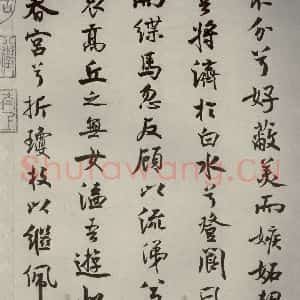 不分兮好蔽美而嫉妬
將濟於白水兮登閬風
而緤馬忽反顧以流涕兮
哀高丘之無女溘吾遊此
春宮兮折瓊枝以繼佩
Shufawang.Cn